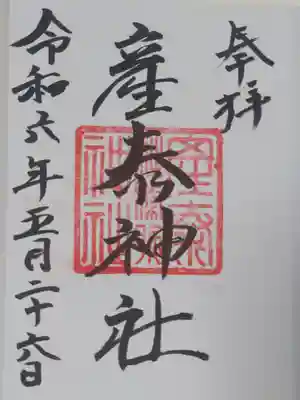 奉拝
産泰神社
令和六年五月二十六日